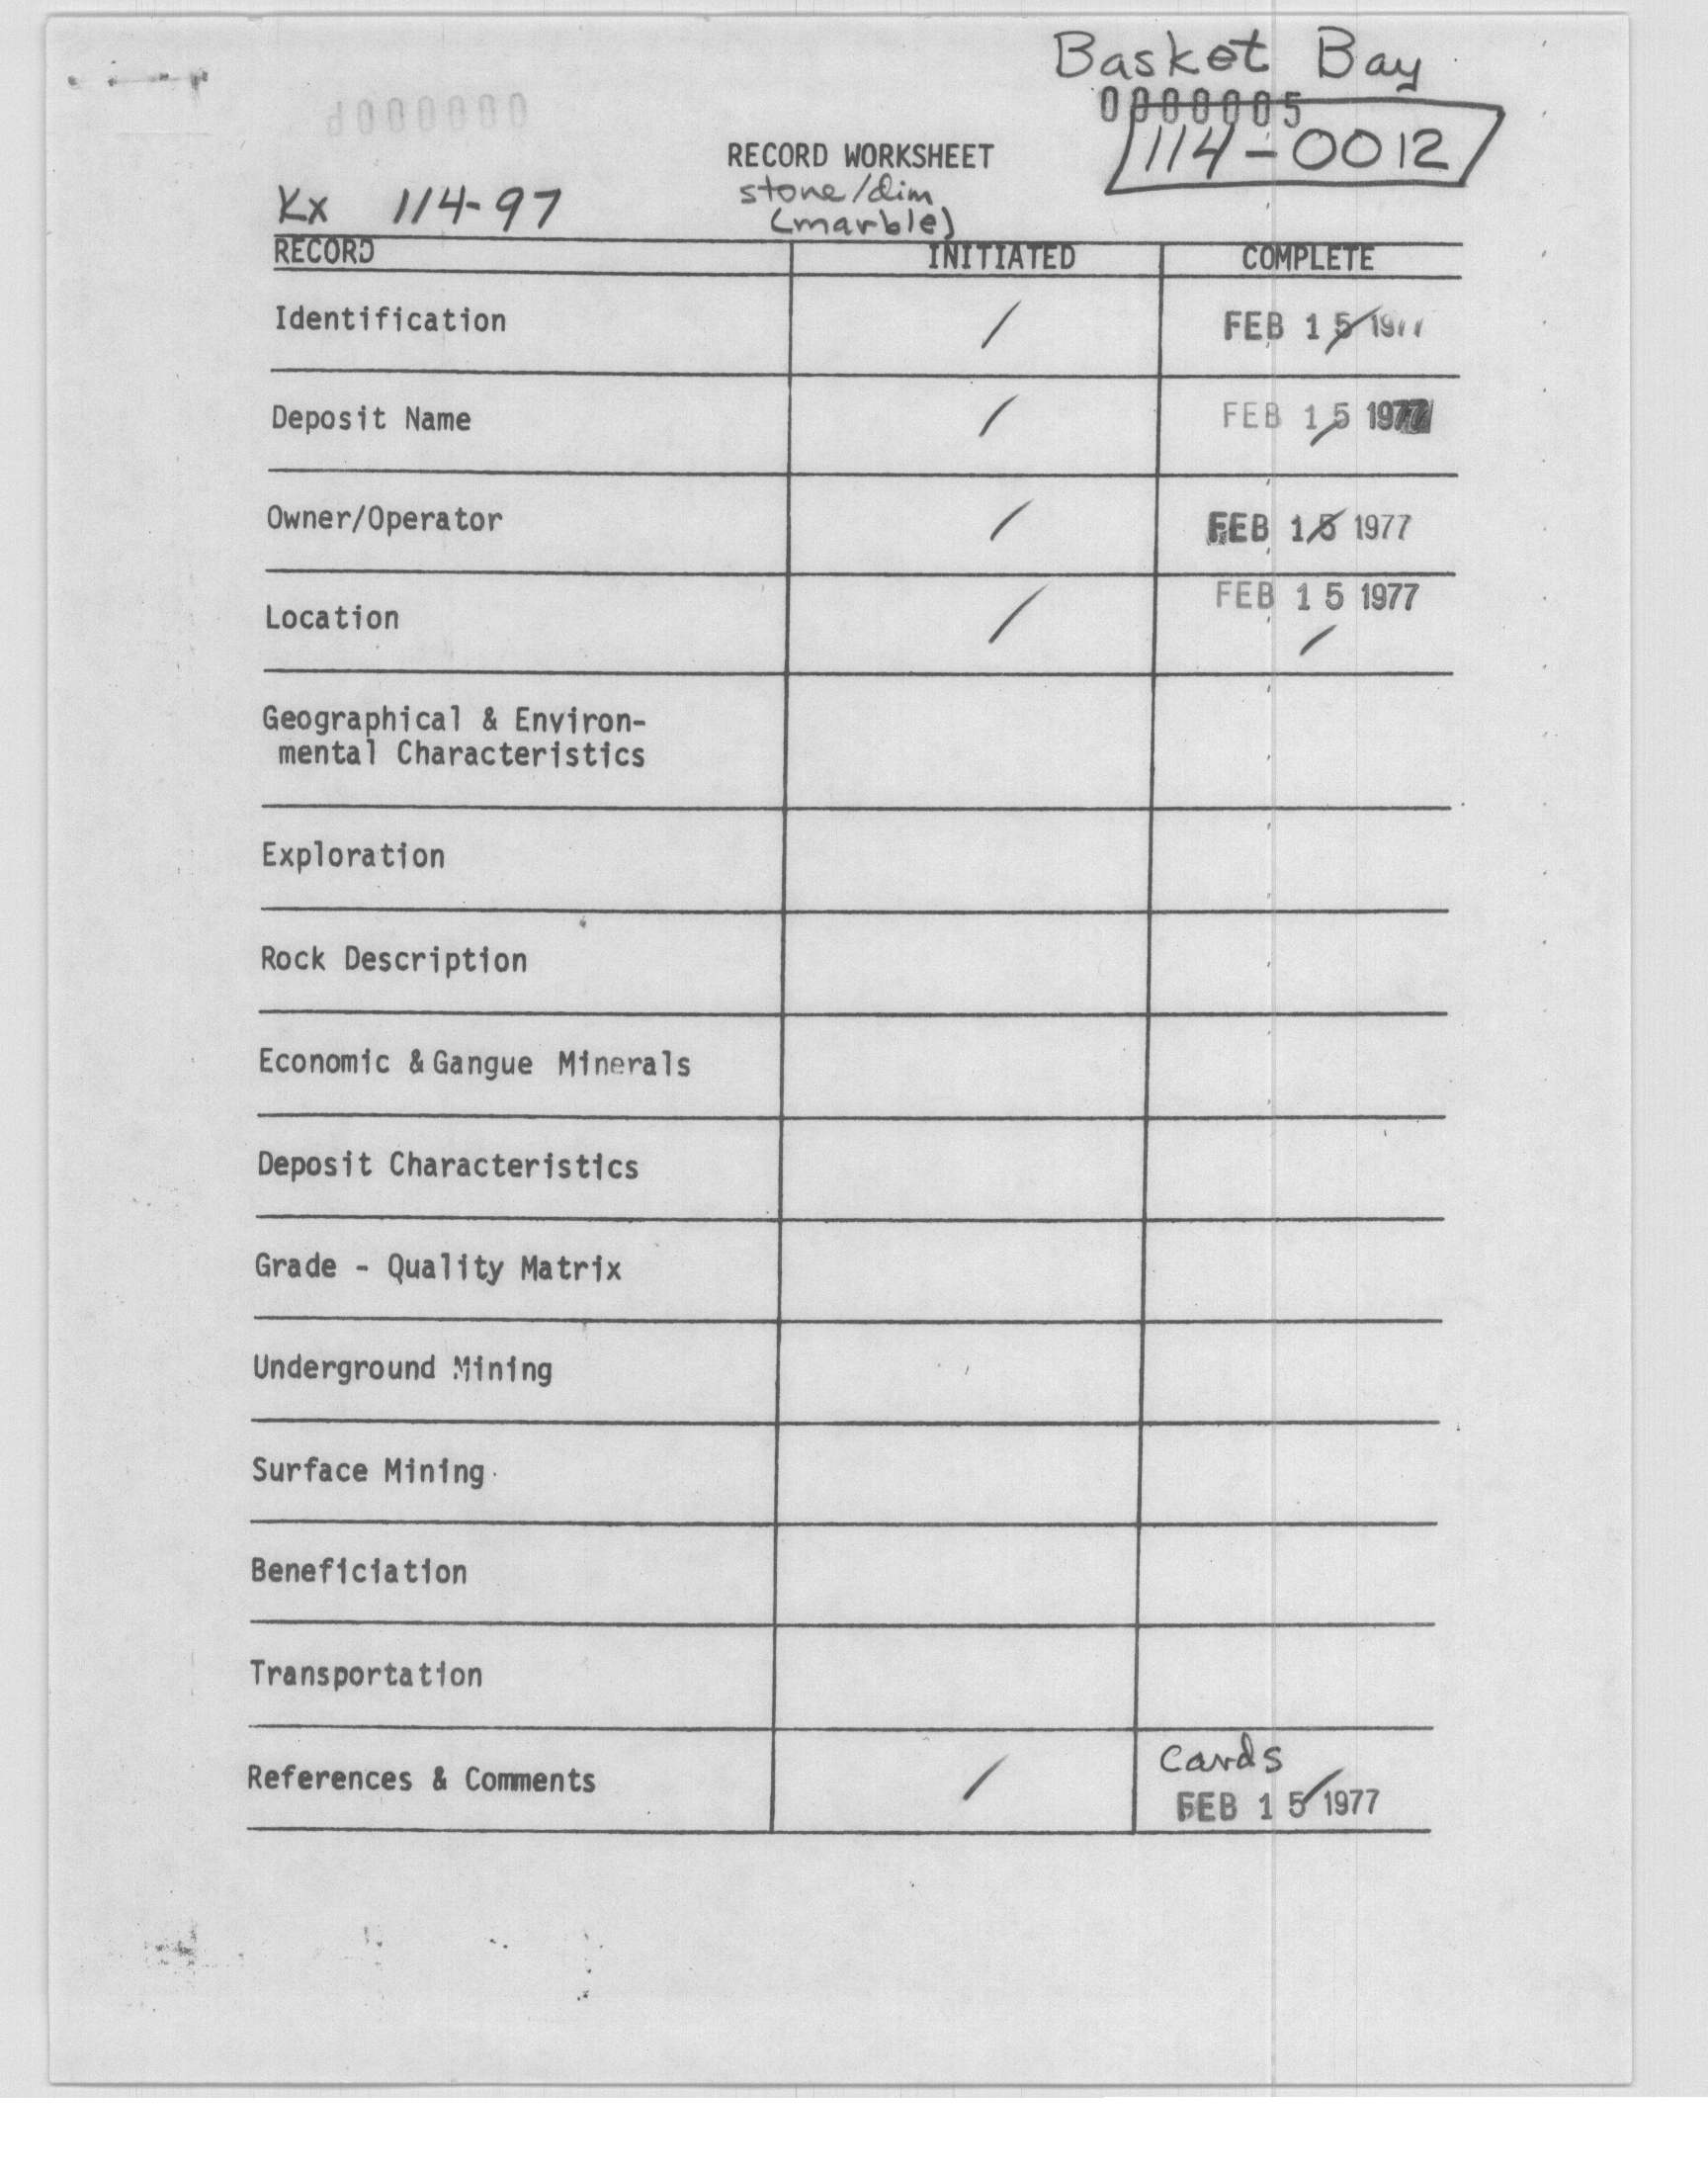 Basket Bay
0000005
RECORD WORKSHEET
114-0012
stone/dim
Kx 114-97
(marble)
RECORD INITIATED COMPLETE
Identification / FEB 15 1977
Deposit Name / FEB 15 1977
Owner/Operator / FEB 15 1977
Location / FEB 15 1977
/
Geographical & Environ-
mental Characteristics
Exploration
Rock Description
Economic & Gangue Minerals
Deposit Characteristics
Grade - Quality Matrix
Underground Mining
Surface Mining
Beneficiation
Transportation
Cards
References & Comments / FEB 15 1977